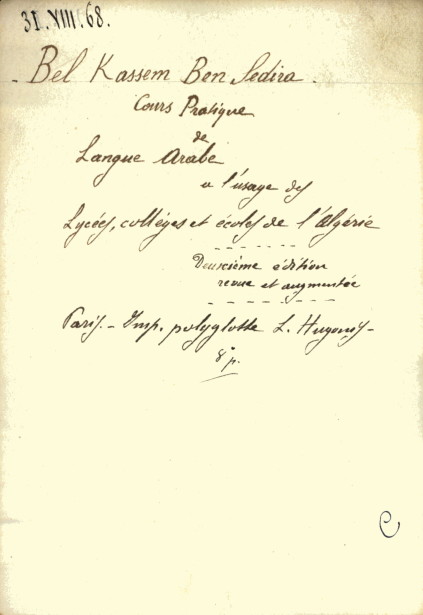 31.VIII.68.
- Bel Kassem Ben Sedira.
Cours Pratique
de
Langue Arabe
a l'usage des
Lycées, colléges et écoles de l'Algérie
Deuxième édition
revue et augmentée
Paris. - Imp. polyglotte L. Hugonis -
8° p.
C